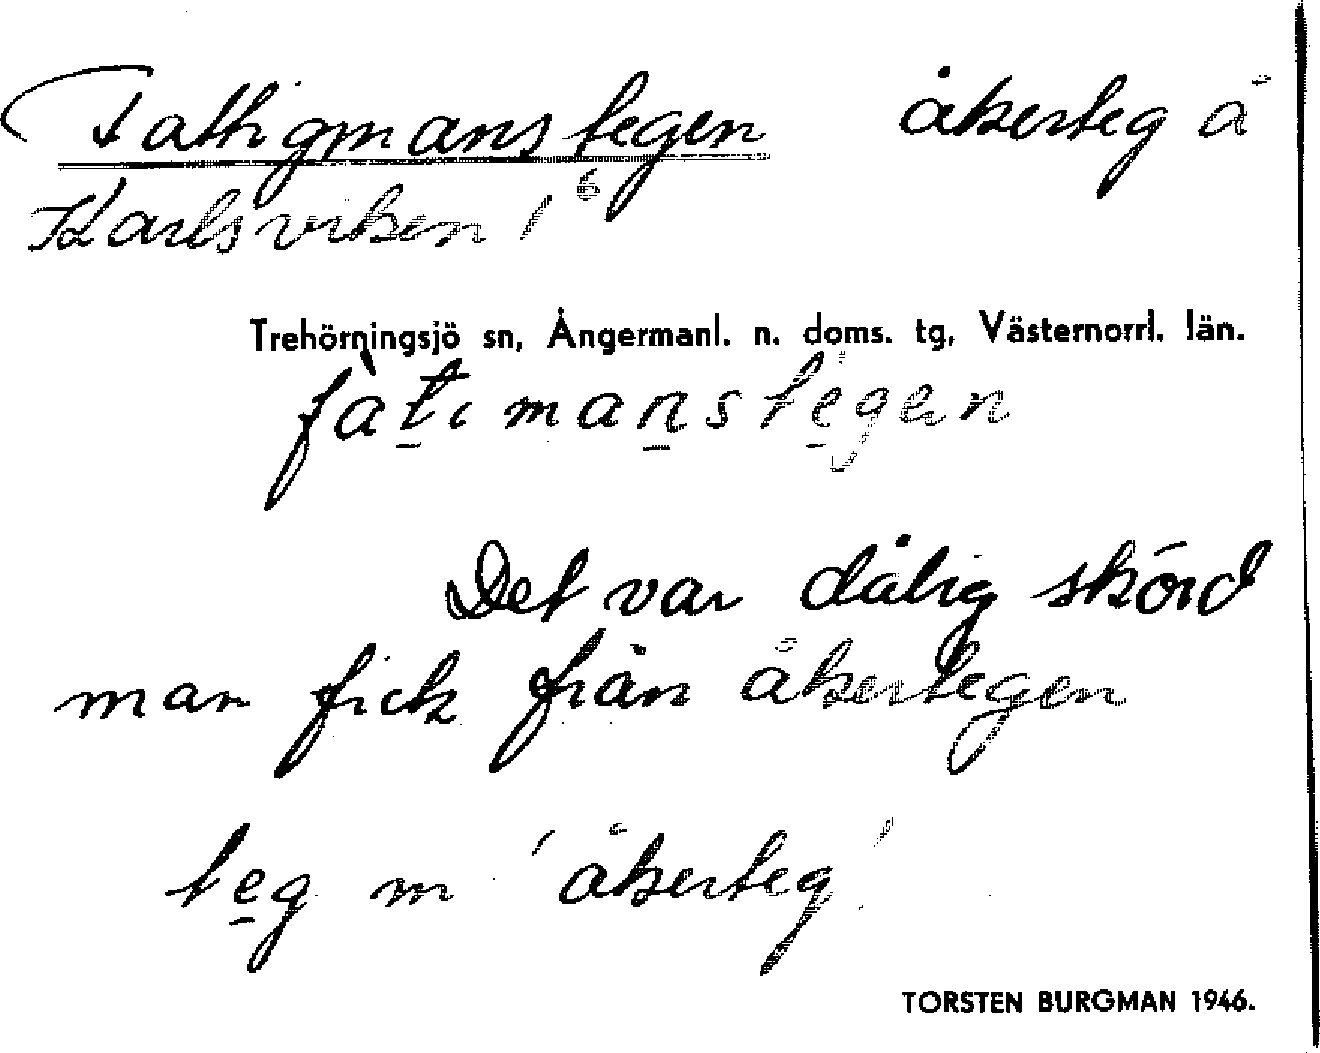 Fattigmanstegen åkerteg å
Karlsviken 1⁶
Trehörningsjö sn, Ångermanl. n. doms. tg, Västernorrl. län.
fàtimanstegen
Det var dålig skörd
man fick från åkertegen
teg m 'åkerteg'
TORSTEN BURGMAN 1946.